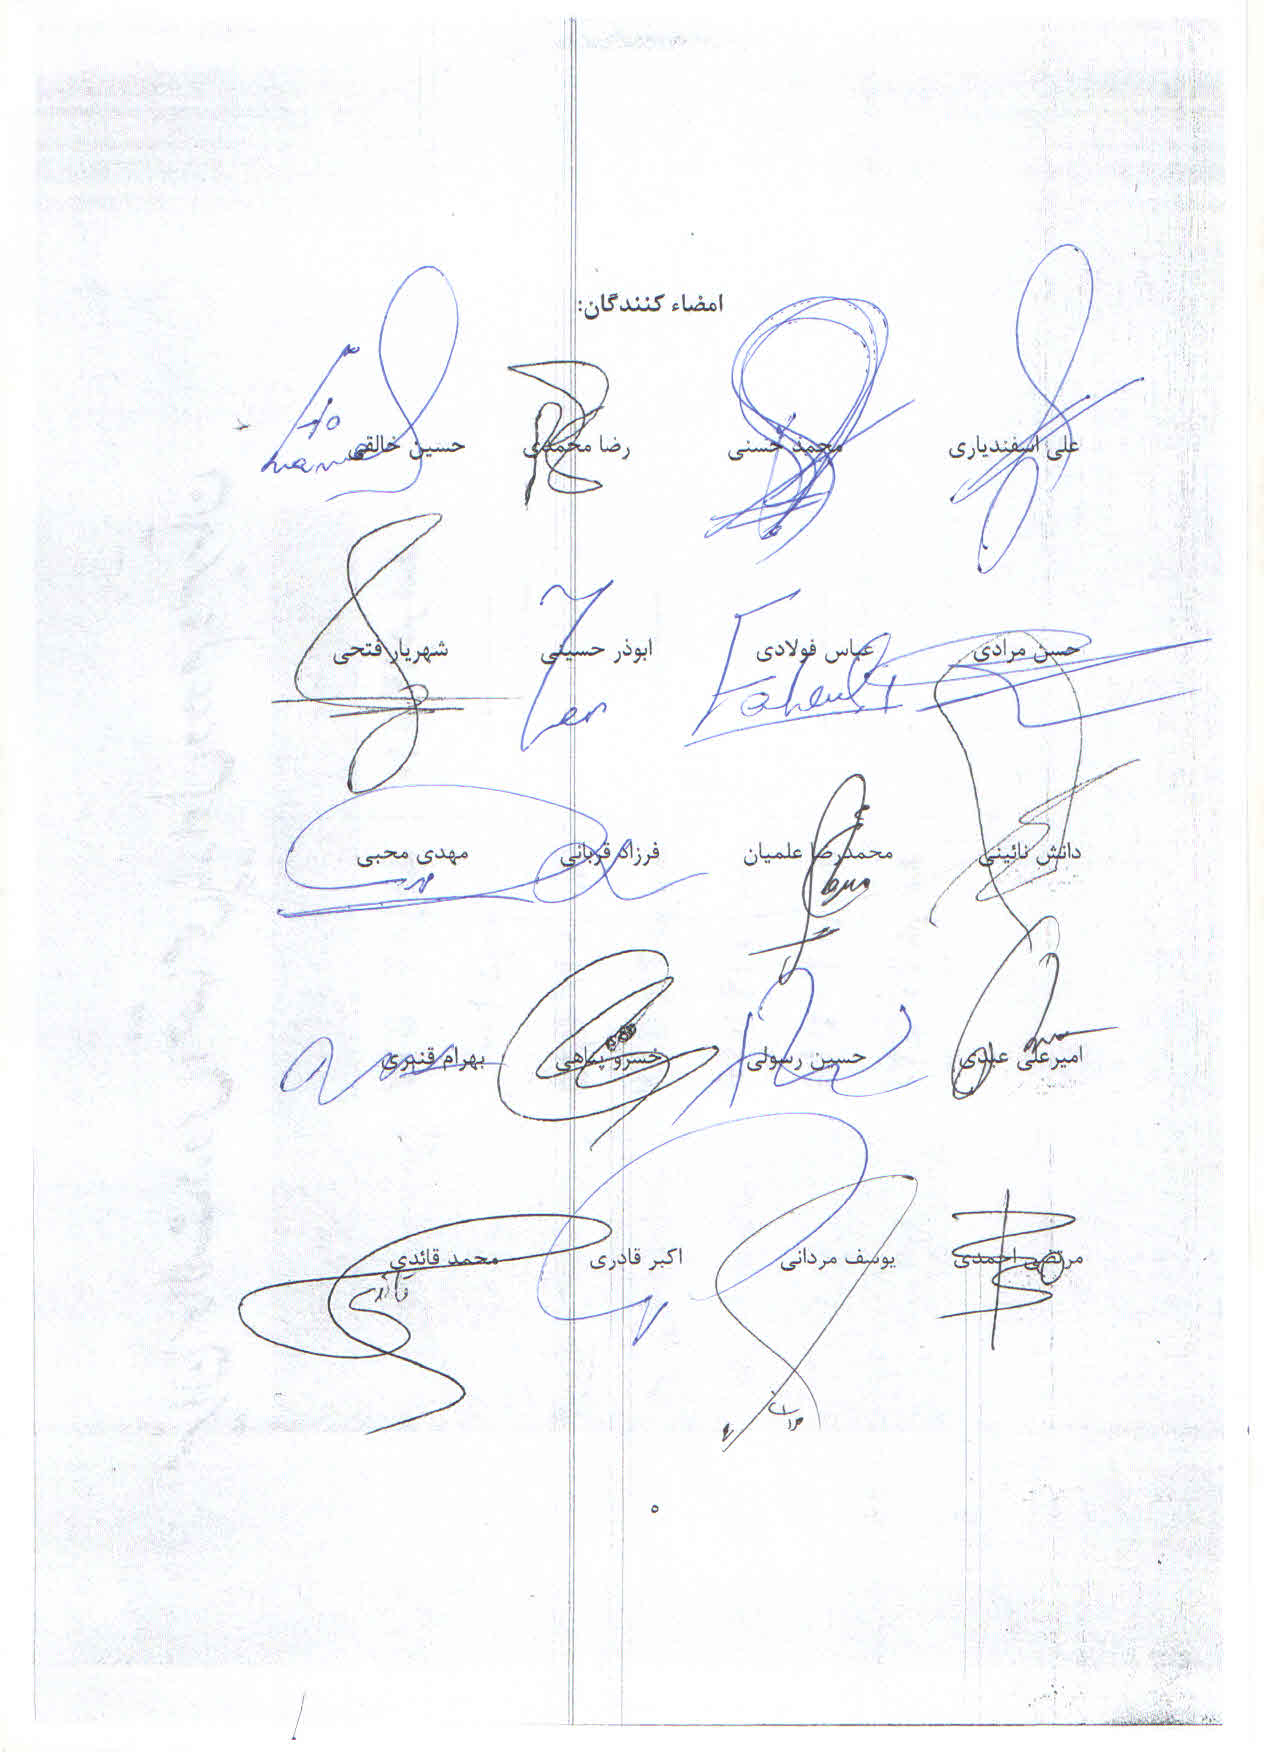 امضاء کنندگان:
علی اسفندیاری محمد حسنی رضا محمدی حسین خالقی
حسن مرادی عباس فولادی ابوذر حسینی شهریار فتحی
دانش نائینی محمدرضا علمیان فرزاد قربانی مهدی محبی
امیرعلی عبدی حسین رسولی خسرو پناهی بهرام قنبری
مرتضی احمدی یوسف مردانی اکبر قادری محمد قائدی
۵